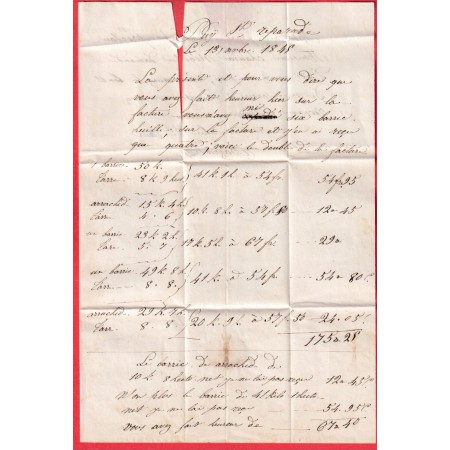 Puy Ste reparade
Le 13 9bre 1848
La present et pour vous dire que
vous avez fait herreur hier sur la
facture vous mavy mi six barrie
huille, sur la facture et j'en ai reçu
que quatre; voice le double de la facture
1 barrie 50 k.
tarre 8 k. 9 hes 41 k 1 h à 54 fr 54 fr 95
arrachid. 15 k 4 h
tarr. 4 - 6 10 k. 8 h. à 57 fr 12 - 45
un barrie 23 k 2 h
tarr. 5 - 7 17 k 5 h à 67 fr 29
un barrie 49 k 8 h
tarr. 8 - 8 41 k. à 54 fr 54 - 80
arrachid. 29 k
tarr. 8 - 8 20 k. 9 h. à 57 f. 50 24 - 05
175 - 25
La barrie de arrachid de
10 k. 8 hecto net je ne lai pas reçu 12 - 45
le barrie de 41 kilo 1 hecto
net je ne lai pas reçu 54 - 95
vous avez fait herreur de 67 - 40